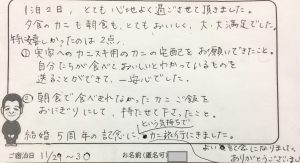 1泊2日、とても心地よく過ごさせて頂きました。
夕食のカニも朝食も、とてもおいしく、大・大満足でした。
特に嬉しかったのは2点。
①実家へのカニスキ用のカニの宅配をお願いできたこと。
自分たちが食べておいしいとわかっているものを
送ることができて、一安心でした。
②朝食で食べきれなかったカニご飯を
おにぎりにして、持たせて下さったこと。
という気持ちで
結婚5周年の記念に、カニ旅行にきました。
よい記念になりました。
ありがとうございました。
ご宿泊日 11/29~30
お名前(匿名可)